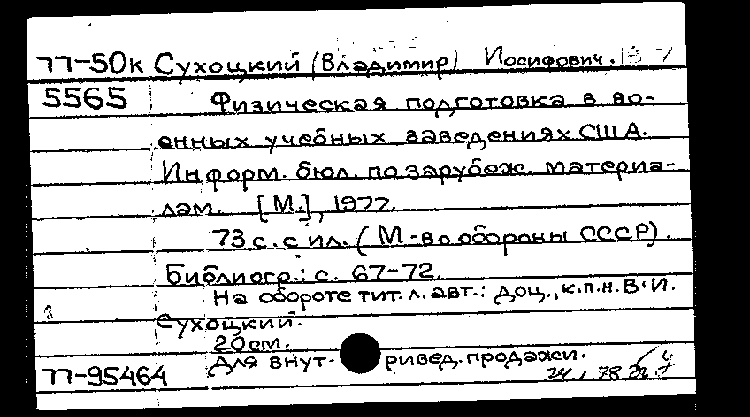 77-50к Сухоцкий (Владимир) Иосифович.
5565 Физическая подготовка в во-
енных учебных заведениях США.
Информ. бюл. по зарубеж. материа-
лам. [М.], 1977.
73 с. с ил. (М-во обороны СССР).
Библиогр.: с. 67-72.
На обороте тит. л. авт.: доц., к.п.н. В.И.
Сухоцкий.
20см.
Для внут- ривед. продажи.
77-95464